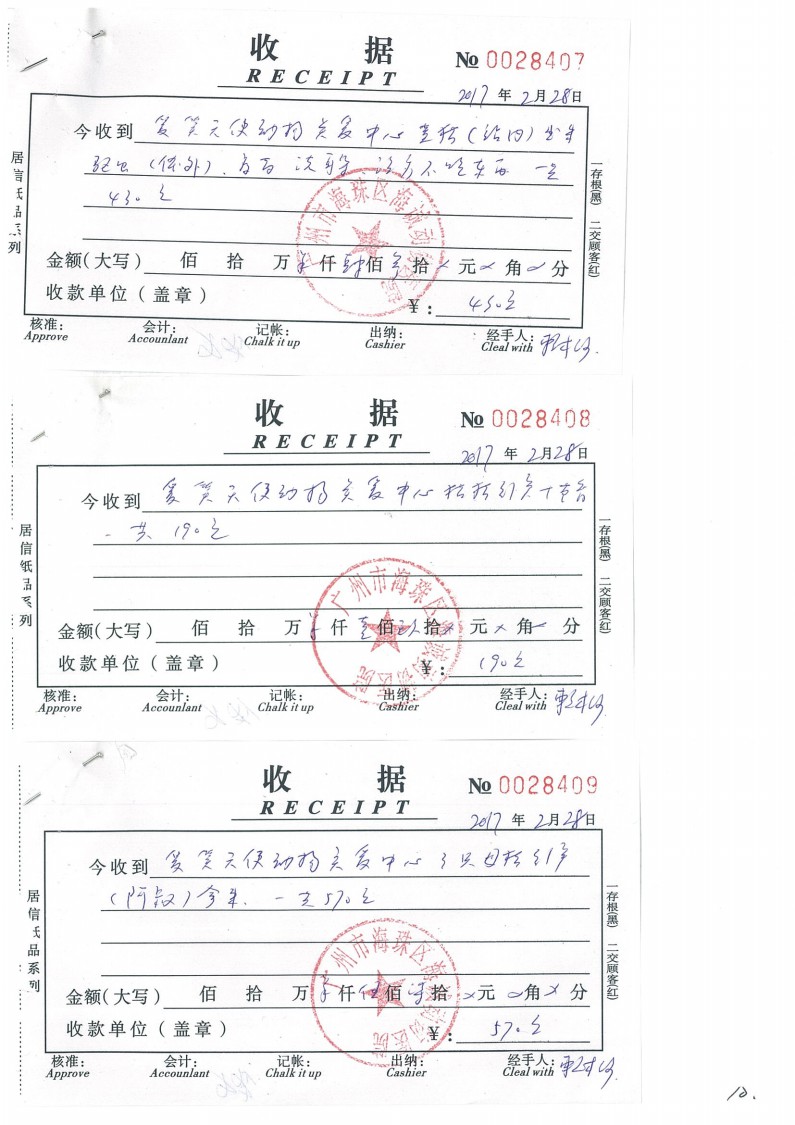 收 据
RECEIPT
№ 0028407
2017 年 2月28日
今收到 天使动物 中心
驱虫(体外)、 洗耳 不吃东西 一共
430元
金额(大写) 佰 拾 万 仟 肆佰 叁拾 元 角 分
收款单位(盖章) ¥: 430元
核准: 会计: 记帐: 出纳: 经手人:
Approve Accounlant Chalk it up Cashier Cleal with
居信纸品系列
一存根(黑) 二交顾客(红)
广州市海珠区海诚动物医院
收 据
RECEIPT
№ 0028408
2017 年 2月28日
今收到 天使动物 中心
一共 190元
金额(大写) 佰 拾 万 仟 壹佰 玖拾 元 角 分
收款单位(盖章) ¥: 190元
核准: 会计: 记帐: 出纳: 经手人:
Approve Accounlant Chalk it up Cashier Cleal with
居信纸品系列
一存根(黑) 二交顾客(红)
广州市海珠区海诚动物医院
收 据
RECEIPT
№ 0028409
2017 年 2月28日
今收到 天使动物 中心 3只
(阿叔)拿来. 一共570元
金额(大写) 佰 拾 万 仟 伍佰 柒拾 元 角 分
收款单位(盖章) ¥: 570元
核准: 会计: 记帐: 出纳: 经手人:
Approve Accounlant Chalk it up Cashier Cleal with
居信纸品系列
一存根(黑) 二交顾客(红)
广州市海珠区海诚动物医院
10.